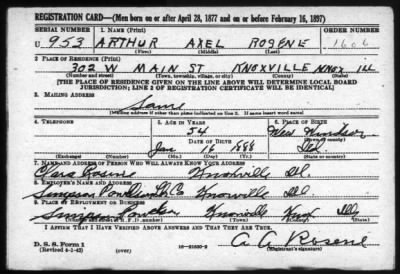 REGISTRATION CARD—(Men born on or after April 28, 1877 and on or before February 16, 1897)
SERIAL NUMBER 1. NAME (Print) ORDER NUMBER
U 953 ARTHUR AXEL ROSENE 1606
(First) (Middle) (Last)
2. PLACE OF RESIDENCE (Print)
302 W MAIN ST KNOXVILLE KNOX ILL
(Number and street) (Town, township, village, or city) (County) (State)
[THE PLACE OF RESIDENCE GIVEN ON THE LINE ABOVE WILL DETERMINE LOCAL BOARD
JURISDICTION; LINE 2 OF REGISTRATION CERTIFICATE WILL BE IDENTICAL]
3. MAILING ADDRESS
Same
[Mailing address if other than place indicated on line 2. If same insert word same]
4. TELEPHONE 5. AGE IN YEARS 6. PLACE OF BIRTH
54 New Windsor
DATE OF BIRTH (Town or county)
Jan 16 1888 Ill.
(Exchange) (Number) (Mo.) (Day) (Yr.) (State or country)
7. NAME AND ADDRESS OF PERSON WHO WILL ALWAYS KNOW YOUR ADDRESS
Clara Rosene Knoxville Ill.
8. EMPLOYER'S NAME AND ADDRESS
Simpson Co Knoxville Ill
9. PLACE OF EMPLOYMENT OR BUSINESS
Simpson Knoxville Knox Ill
(Number and street or R. F. D. number) (Town) (County) (State)
I AFFIRM THAT I HAVE VERIFIED ABOVE ANSWERS AND THAT THEY ARE TRUE.
A. A. Rosene
D. S. S. Form 1
(Revised 4-1-42) 16—21630-2 (Registrant's signature)